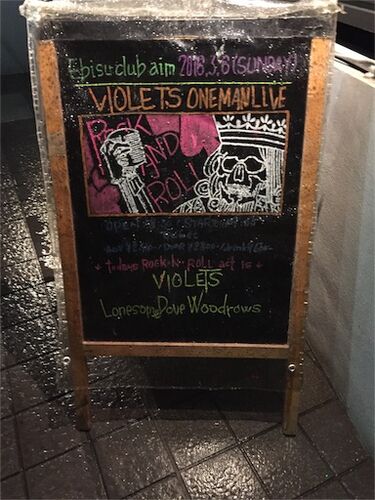 Ebisu club aim 2018.3.8 (SUNDAY)
VIOLETS ONEMANLIVE
ROCK
AND
ROLL
OPEN
↓ todays ROCK N' ROLL act is ↓
VIOLETS
Lonesome Dove Woodrows